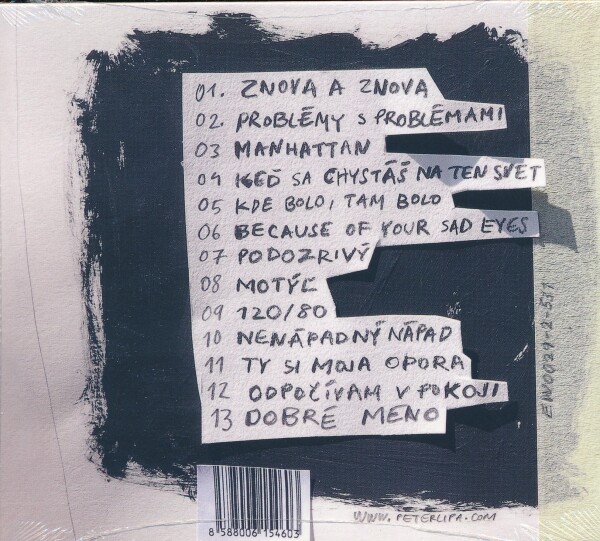 01. ZNOVA A ZNOVA
02. PROBLÉMY S PROBLÉMAMI
03 MANHATTAN
04 KEĎ SA CHYSTÁŠ NA TEN SVET
05 KDE BOLO, TAM BOLO
06 BECAUSE OF YOUR SAD EYES
07 PODOZRIVÝ
08 MOTÝĽ
09 120/80
10 NENÁPADNÝ NÁPAD
11 TY SI MOJA OPORA
12 ODPOČÍVAM V POKOJI
13 DOBRÉ MENO
EN0029-2-531
8 588006 154603
WWW.PETERLIPA.COM